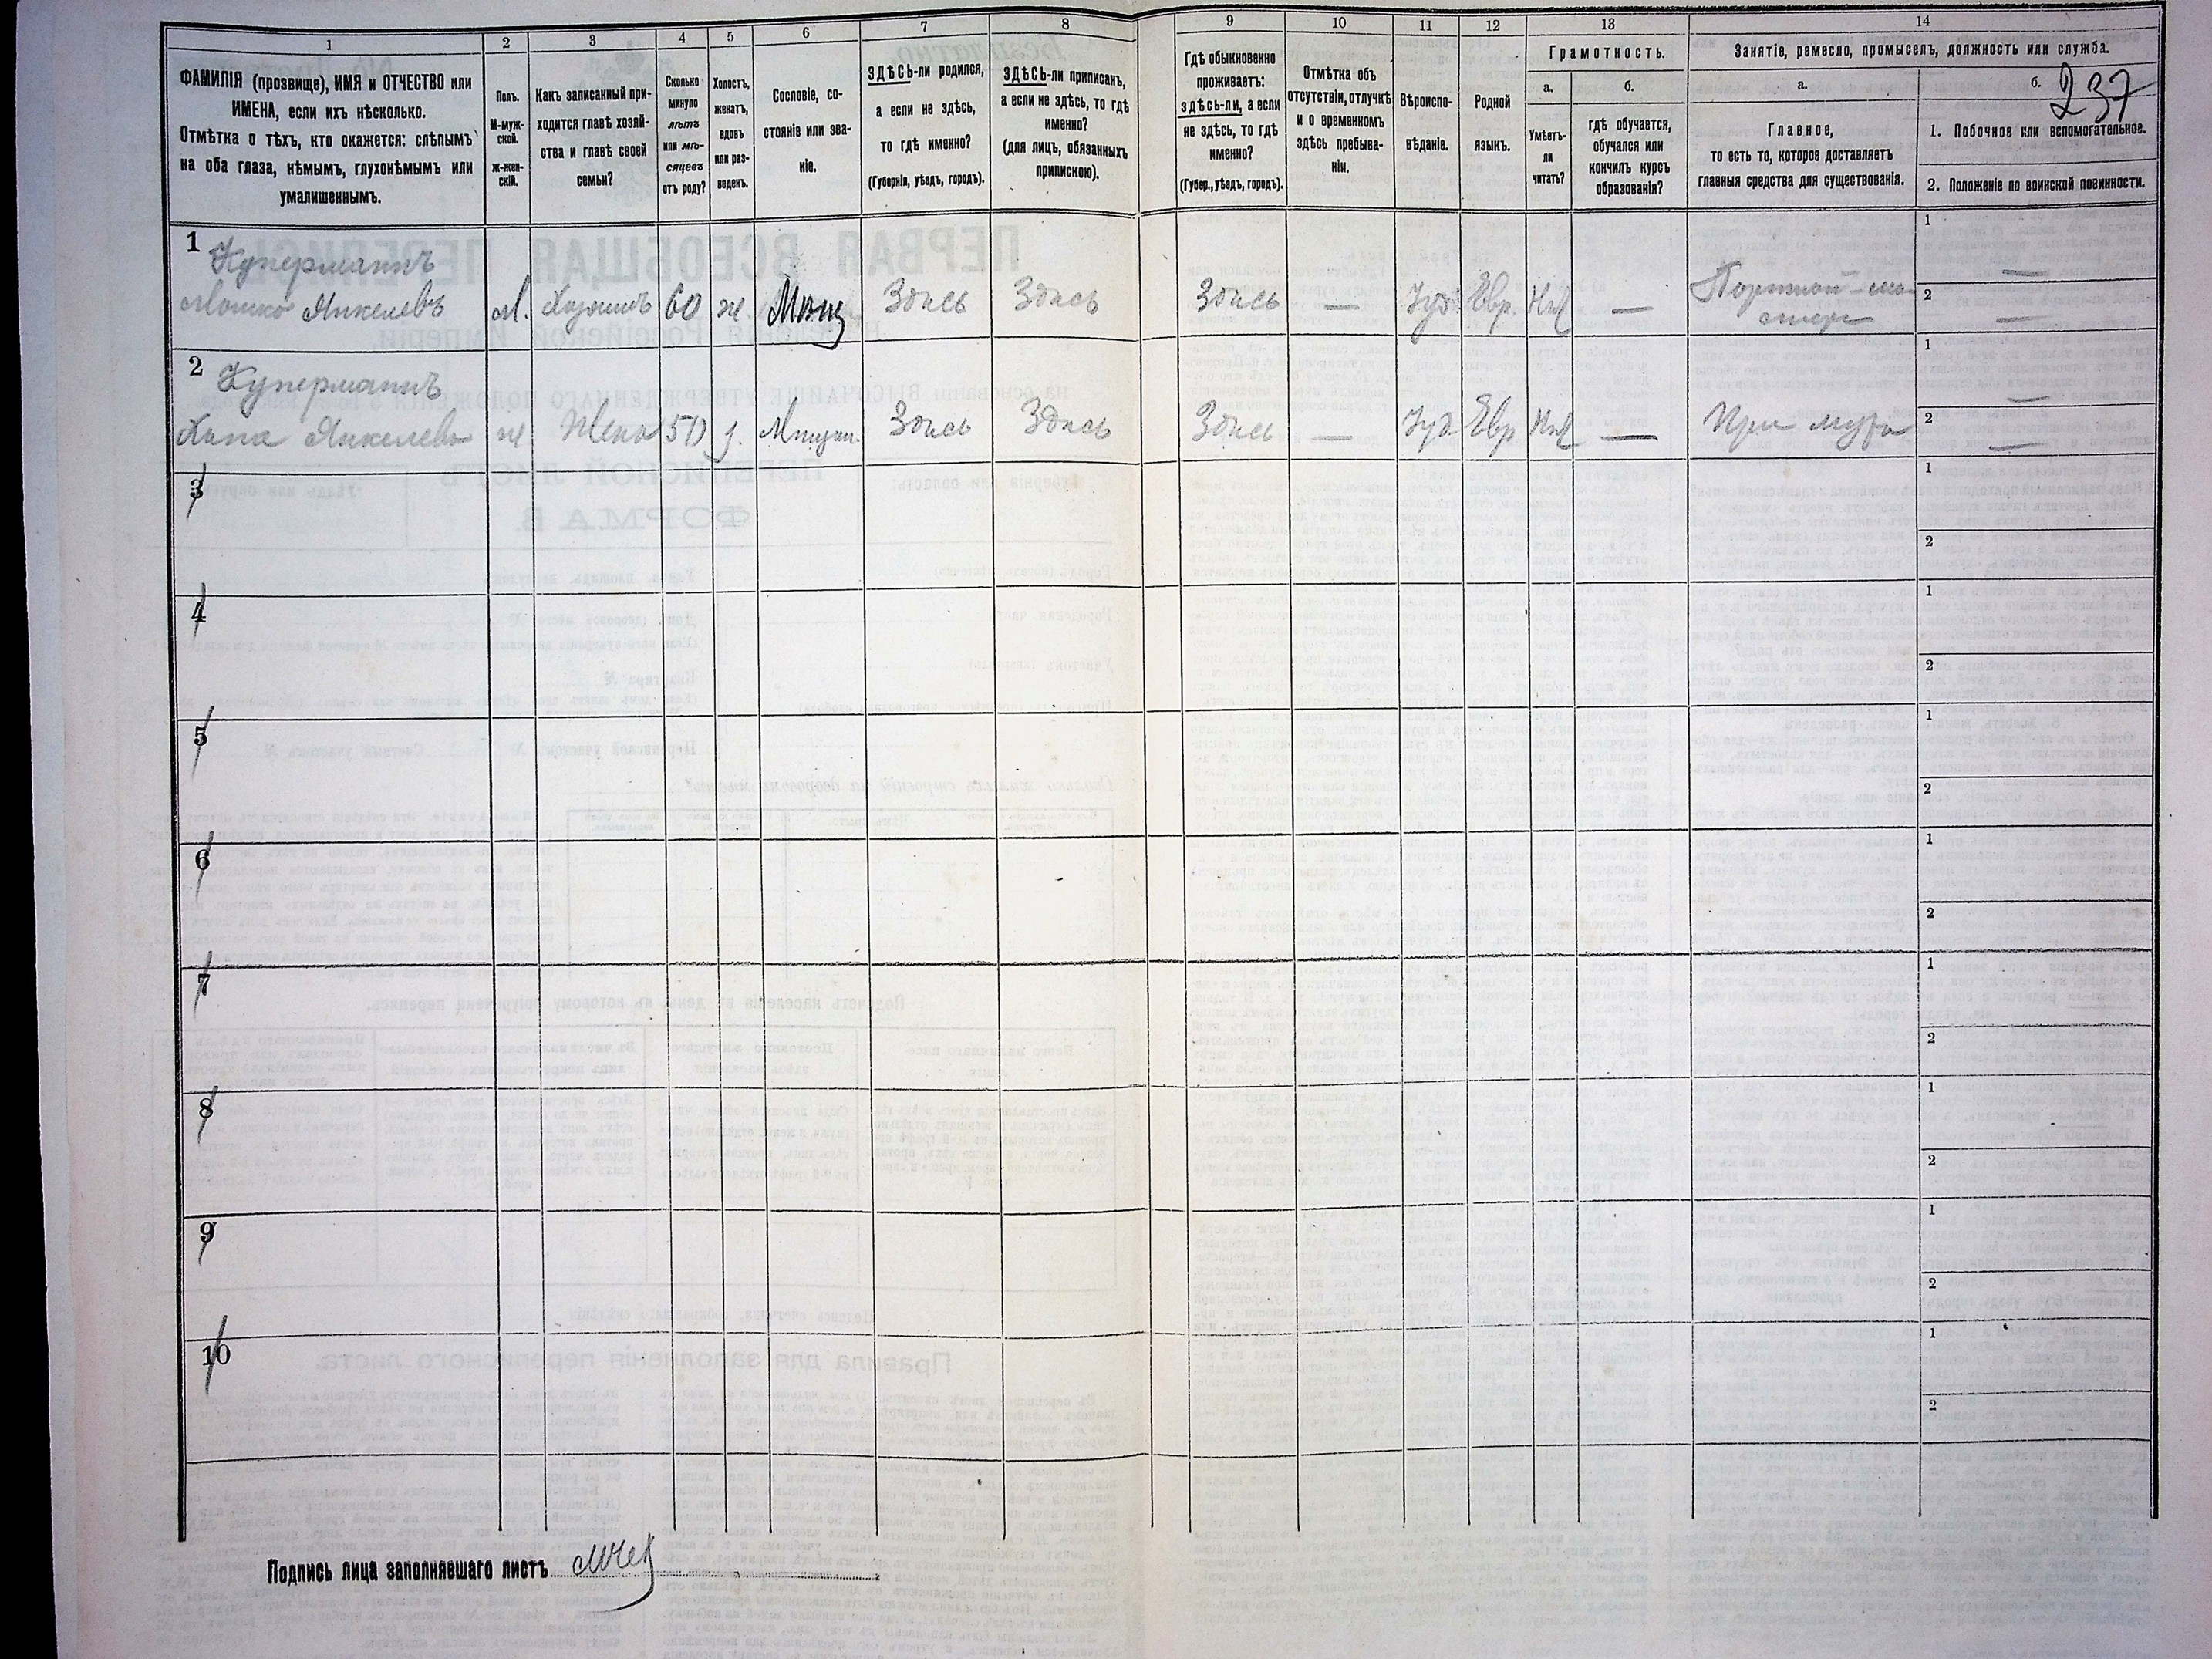 1 2 3 4 5 6 7 8 9 10 11 12 13 14
ФАМИЛІЯ (прозвище), ИМЯ и ОТЧЕСТВО или
ИМЕНА, если ихъ нѣсколько.
Отмѣтка о тѣхъ, кто окажется: слѣпымъ
на оба глаза, нѣмымъ, глухонѣмымъ или
умалишеннымъ.
Полъ.
М-муж-
ской.
ж-жен-
скій.
Какъ записанный при-
ходится главѣ хозяй-
ства и главѣ своей
семьи?
Сколько
минуло
лѣтъ
или мѣ-
сяцевъ
отъ роду?
Холостъ,
женатъ,
вдовъ
или раз-
веденъ.
Сословіе, со-
стояніе или зва-
ніе.
ЗДѢСЬ-ли родился,
а если не здѣсь,
то гдѣ именно?
(Губернія, уѣздъ, городъ).
ЗДѢСЬ-ли приписанъ,
а если не здѣсь, то гдѣ
именно?
(для лицъ, обязанныхъ
припискою).
Гдѣ обыкновенно
проживаетъ:
здѣсь-ли, а если
не здѣсь, то гдѣ
именно?
(Губер., уѣздъ, городъ).
Отмѣтка объ
отсутствіи, отлучкѣ
и о временномъ
здѣсь пребыва-
ніи.
Вѣроиспо-
вѣданіе.
Родной
языкъ.
Грамотность.
а.
Умѣетъ-
ли
читать?
б.
гдѣ обучается,
обучался или
кончилъ курсъ
образованія?
Занятіе, ремесло, промыселъ, должность или служба.
а.
Главное,
то есть то, которое доставляетъ
главныя средства для существованія.
б.
237
1. Побочное или вспомогательное.
2. Положеніе по воинской повинности.
1 Куперманнъ
Мошко Янкелевъ м. Хозяинъ 60 ж Мѣщ Здѣсь Здѣсь Здѣсь — Іуд. Евр. Нѣт —
— 1
— 2
2 Куперманнъ
Хана Янкелева ж Жена 50 з. Мѣщан. Здѣсь Здѣсь Здѣсь — Іуд Евр Нѣт — При мужѣ
1 —
2 —
3
1
2
4
1
2
5
1
2
6
1
2
7
1
2
8
1
2
9
1
2
10
1
2
Подпись лица заполнявшаго листъ